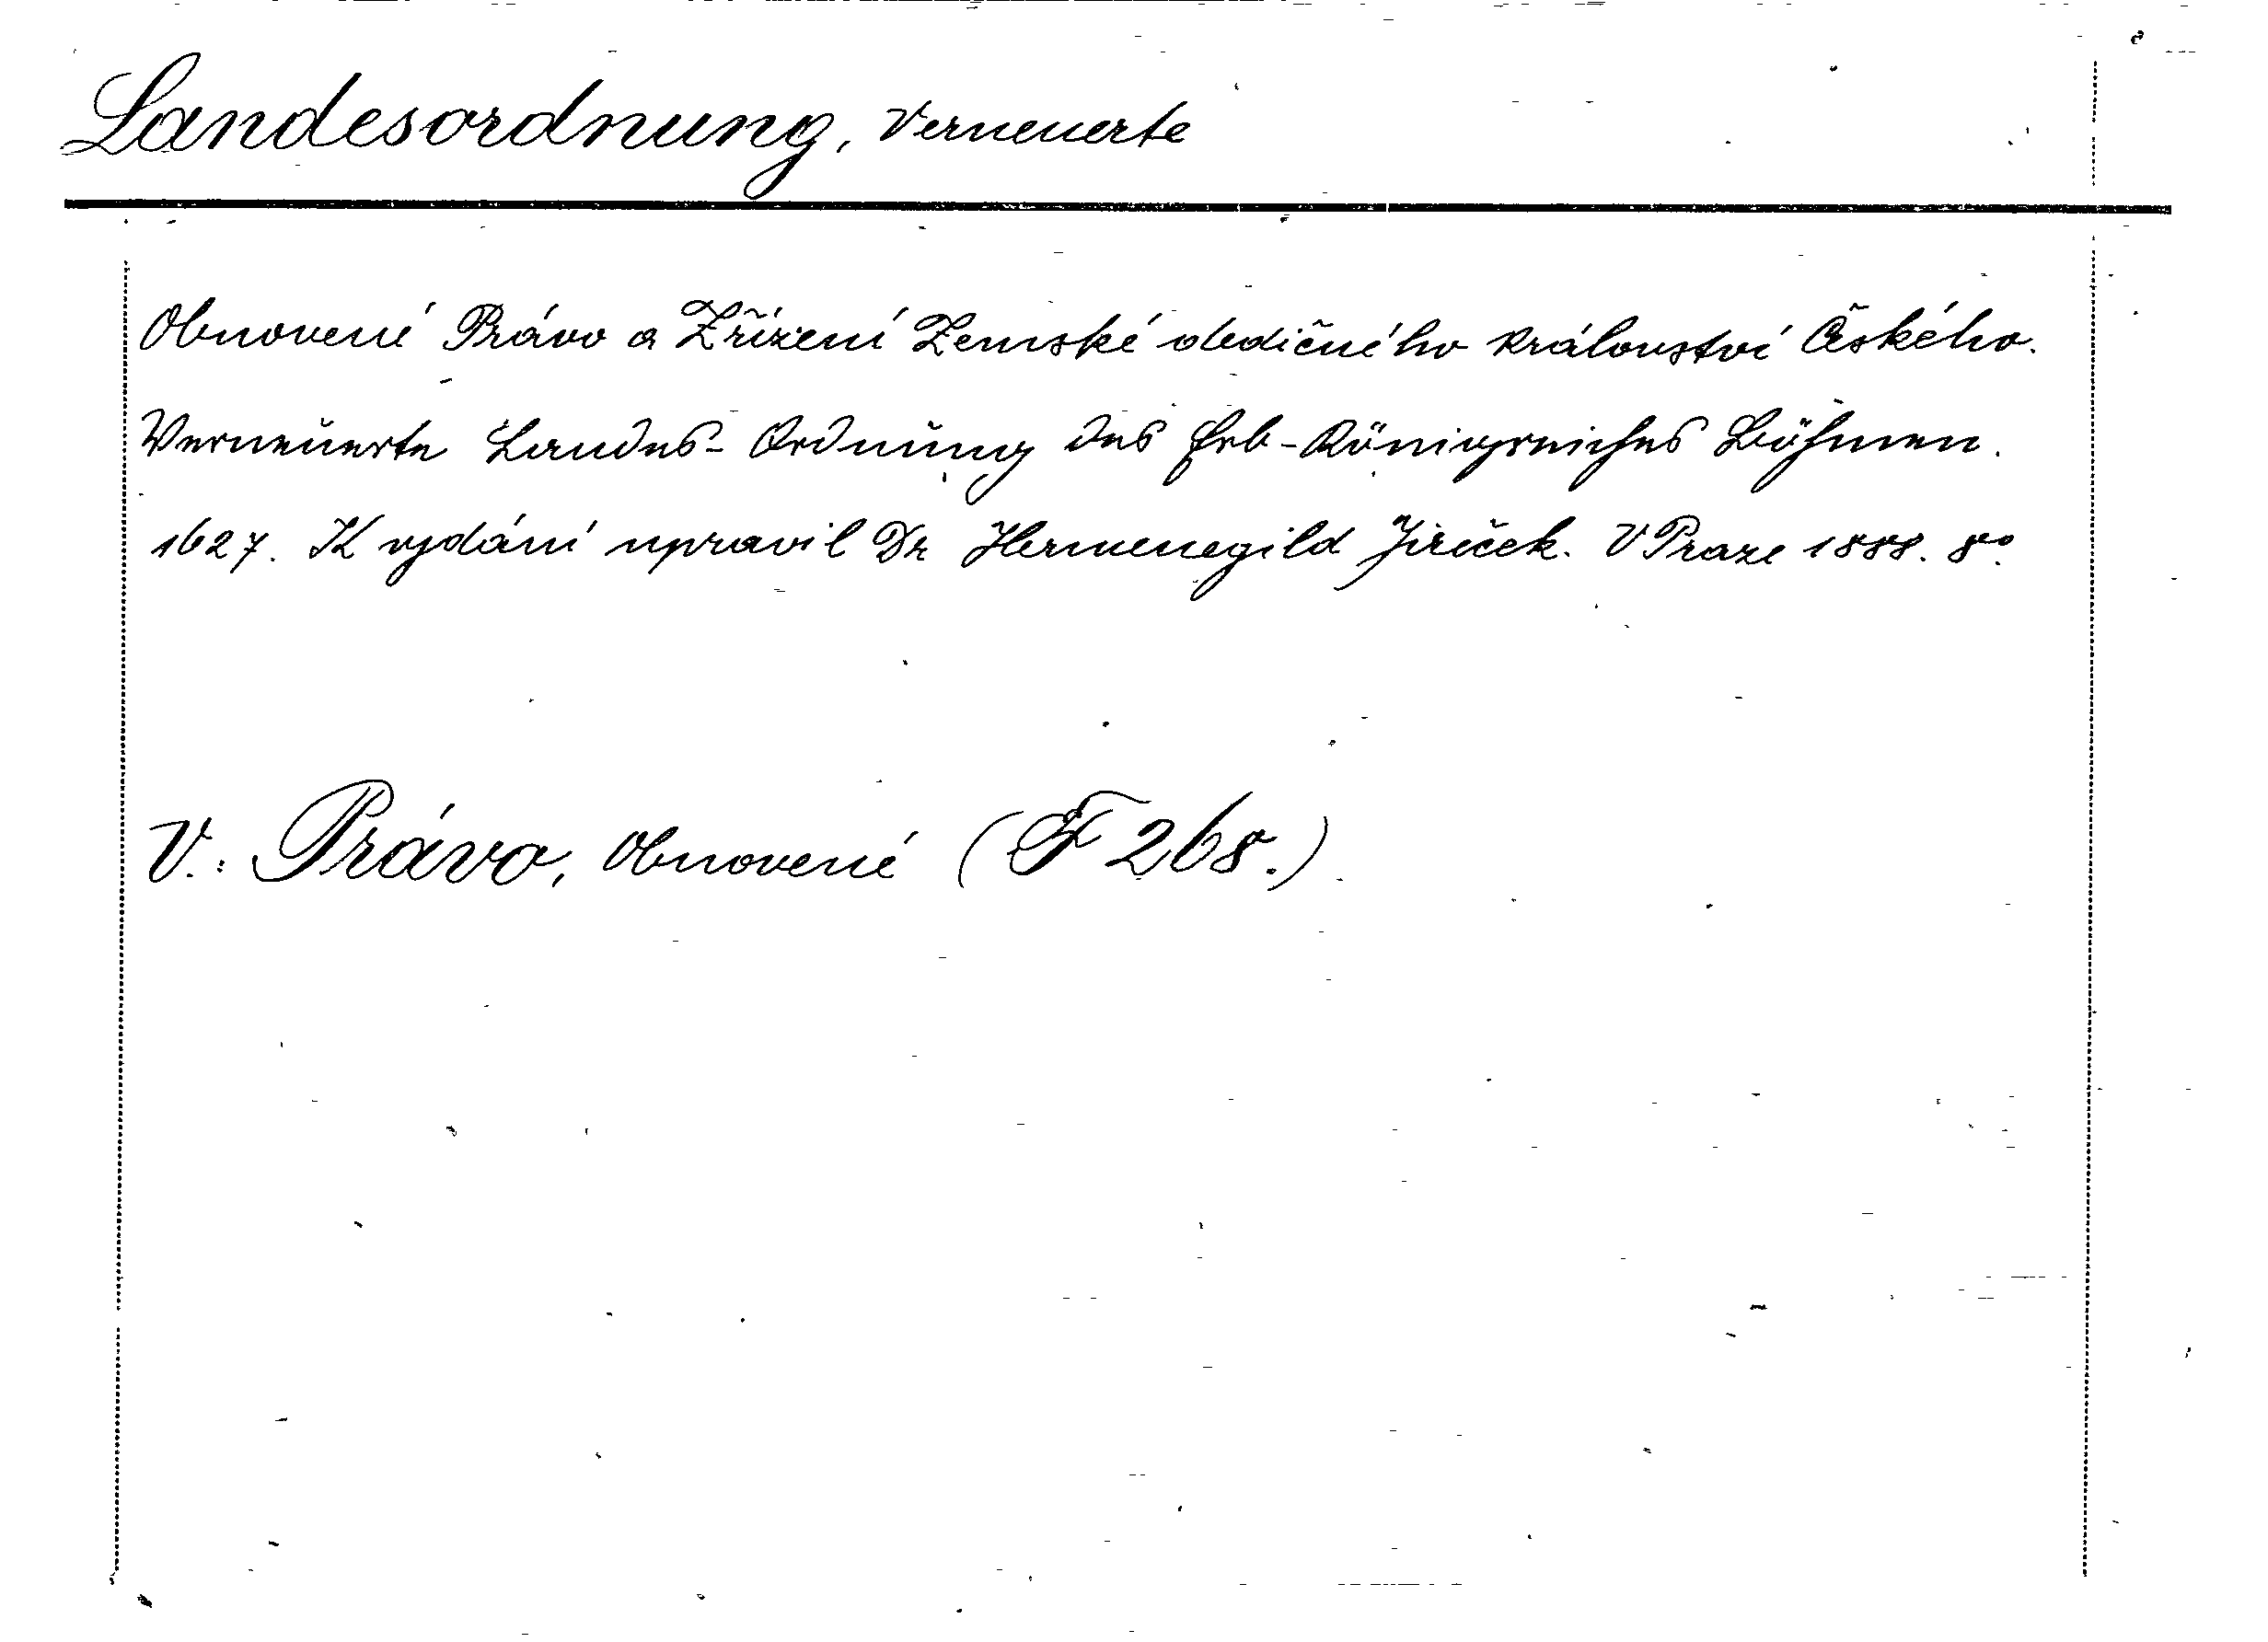 Landesordnung, Verneuerte
Obnovené Právo a Zřízení Zemské dědičného království Českého.
Verneuerte Landes-Ordnung des Erb-Königreiches Böhmen.
1627. K vydání upravil Dr Hermenegild Jireček. V Praze 1888. 8º.
V.: Právo, Obnovené (F 268.)